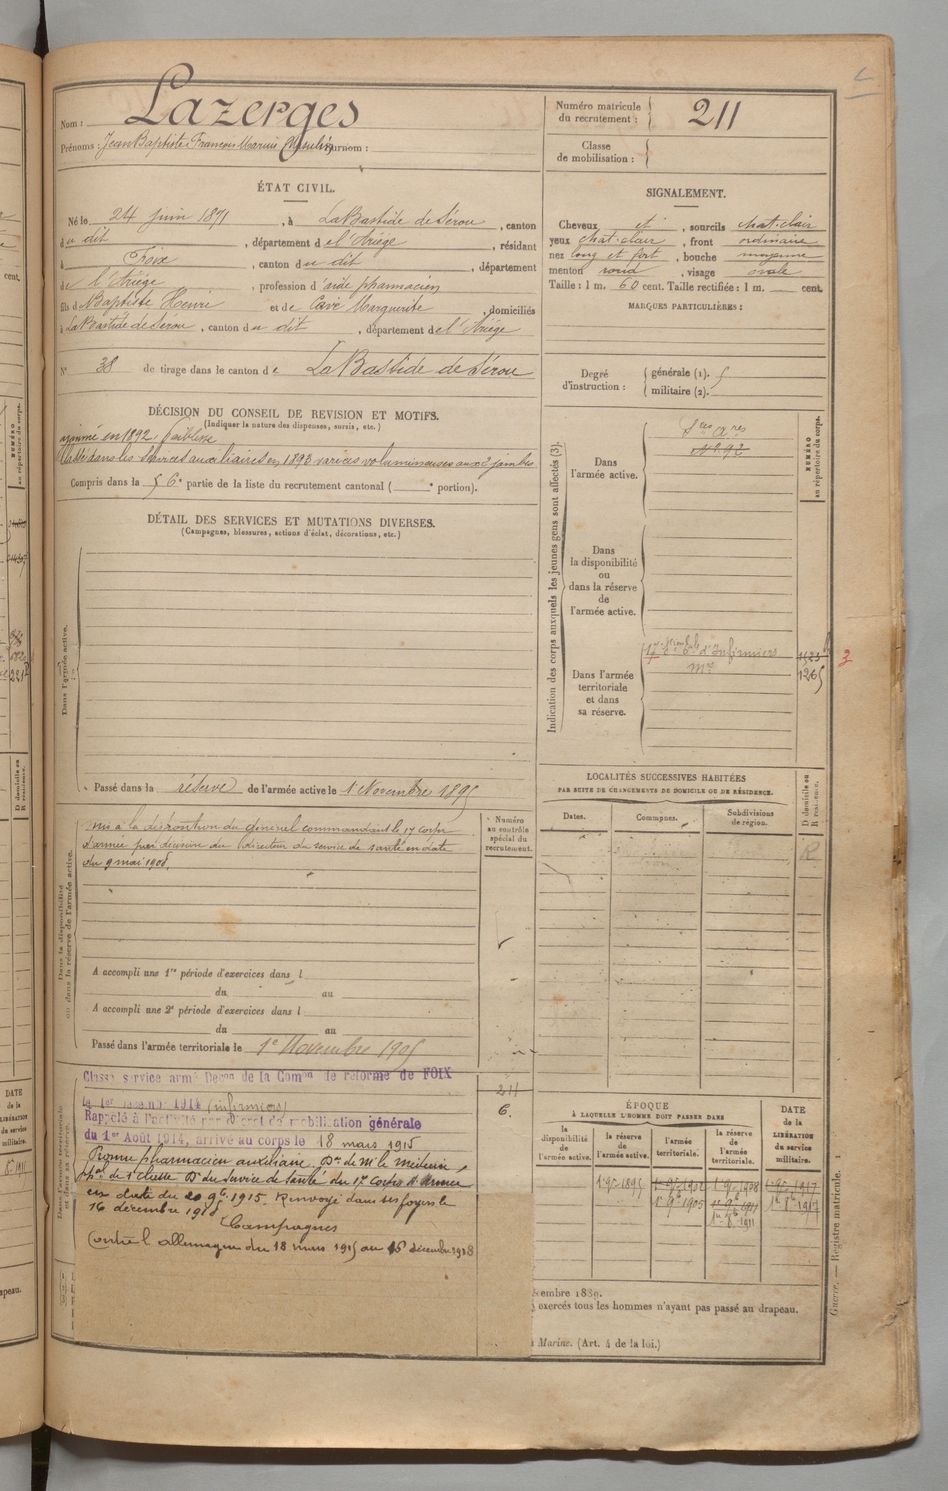 Nom : Lazerges
Prénoms : Jean Baptiste François Marius Surnom :
Numéro matricule du recrutement : 211
Classe de mobilisation :
ÉTAT CIVIL.
Né le 24 juin 1871, à LaBastide de Sérou, canton
du dit, département de l'Ariége, résidant
à Foix, canton du dit, département
de l'Ariége, profession d'aide pharmacien
fils de Baptiste Henri et de Cavé Marguerite, domiciliés
à LaBastide de Sérou, canton du dit, département de l'Ariége
N° 38 de tirage dans le canton de LaBastide de Sérou
SIGNALEMENT.
Cheveux et, sourcils chat-clair
yeux chat-clair, front ordinaire
nez long et fort, bouche moyenne
menton rond, visage ovale
Taille : 1 m. 60 cent. Taille rectifiée : 1 m. cent.
MARQUES PARTICULIÈRES :
Degré d'instruction : générale (1).
militaire (2).
DÉCISION DU CONSEIL DE REVISION ET MOTIFS.
(Indiquer la nature des dispenses, sursis, etc.)
ajourné en 1892 faiblesse
Classé dans les services auxiliaires en 1893 varices volumineuses aux 2 jambes
Compris dans la 6e partie de la liste du recrutement cantonal ( portion).
DÉTAIL DES SERVICES ET MUTATIONS DIVERSES.
(Campagnes, blessures, actions d'éclat, décorations, etc.)
Dans l'armée active.
Passé dans la réserve de l'armée active le 1 Novembre 1895
Dans la disponibilité ou dans la réserve de l'armée active.
Mis à la disposition du général commandant le 17 corps
d'armée par décision du directeur du service de santé en date
du 9 mai 1908.
Numéro au contrôle spécial du recrutement.
A accompli une 1re période d'exercices dans l
du au
A accompli une 2e période d'exercices dans l
du au
Passé dans l'armée territoriale le 1e Novembre 1905
Classé service armé Décon de la Comon de réforme de FOIX
(infirmiers)
Rappelé à l'activité par Décret de mobilisation générale
du 1er Août 1914, arrivé au corps le 18 mars 1915
Promu pharmacien auxiliaire Don de Mr le Médecin
pal de 1e Classe Dr du Service de Santé du 17 Corps d'Armée
en date du 20 9b 1915. Renvoyé dans ses foyers le
16 décembre 1918
Campagnes
Contre l'allemagne du 18 mars 1915 au 16 décembre 1918
211
6.
Indication des corps auxquels les jeunes gens sont affectés (3).
NUMÉRO au répertoire du corps.
Dans l'armée active.
Sces ares
N° 92
Dans la disponibilité ou dans la réserve de l'armée active.
Dans l'armée territoriale et dans sa réserve.
17 d'Infirmiers
Mres
1265
3
LOCALITÉS SUCCESSIVES HABITÉES
PAR SUITE DE CHANGEMENTS DE DOMICILE OU DE RÉSIDENCE.
Dates. Communes. Subdivisions de région. D domicile ou R résidence.
R
ÉPOQUE
À LAQUELLE L'HOMME DOIT PASSER DANS
DATE de la LIBÉRATION du service militaire.
la disponibilité de l'armée active. la réserve de l'armée active. l'armée territoriale. la réserve de l'armée territoriale.
1 9e 1895 1 9e 1902 1 9e 1908 1 9e 1917
1e 9b 1905 1e 9b 1911 1e 8b 1917
1e 8b 1911
embre 1889.
exercés tous les hommes n'ayant pas passé au drapeau.
Marine. (Art. 4 de la loi.)
Guerre. — Registre matricule. 1